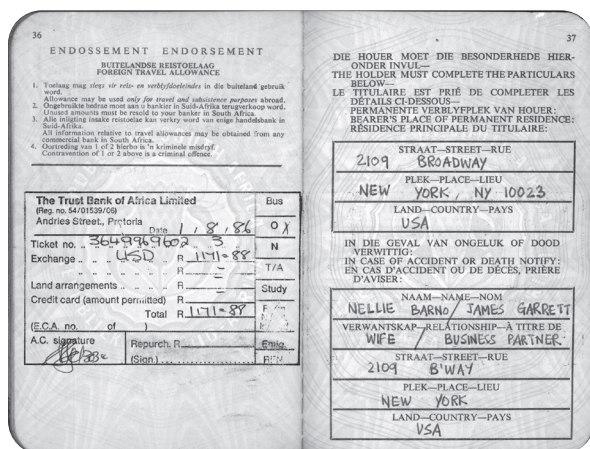 36
ENDOSSEMENT ENDORSEMENT
BUITELANDSE REISTOELAAG
FOREIGN TRAVEL ALLOWANCE
1. Toelaag mag slegs vir reis- en verblyfdoeleindes in die buiteland gebruik
word.
Allowance may be used only for travel and subsistence purposes abroad.
2. Ongebruikte bedrae moet aan u bankier in Suid-Afrika terugverkoop word.
Unused amounts must be resold to your banker in South Africa.
3. Alle inligting insake reistoelae kan verkry word van enige handelsbank in
Suid-Afrika.
All information relative to travel allowances may be obtained from any
commercial bank in South Africa.
4. Oortreding van 1 of 2 hierbo is 'n kriminele misdryf.
Contravention of 1 or 2 above is a criminal offence.
The Trust Bank of Africa Limited
(Reg. no. 54/01539/06)
Andries Street, Pretoria
Date 1.8.86
Ticket no. 3649969602 3
Exchange USD R 1171=88
R
Land arrangements R
Credit card (amount permitted) R
Total R 1171=88
(E.C.A. no. of )
A.C. signature
Repurch. R
(Sign.)
Bus
O X
N
T/A
Study
Emig.
37
DIE HOUER MOET DIE BESONDERHEDE HIER-
ONDER INVUL—
THE HOLDER MUST COMPLETE THE PARTICULARS
BELOW—
LE TITULAIRE EST PRIÉ DE COMPLETER LES
DÉTAILS CI-DESSOUS—
PERMANENTE VERBLYFPLEK VAN HOUER:
BEARER'S PLACE OF PERMANENT RESIDENCE:
RÉSIDENCE PRINCIPALE DU TITULAIRE:
STRAAT—STREET—RUE
2109 BROADWAY
PLEK—PLACE—LIEU
NEW YORK, NY 10023
LAND—COUNTRY—PAYS
USA
IN DIE GEVAL VAN ONGELUK OF DOOD
VERWITTIG:
IN CASE OF ACCIDENT OR DEATH NOTIFY:
EN CAS D'ACCIDENT OU DE DÉCÈS, PRIÈRE
D'AVISER:
NAAM—NAME—NOM
NELLIE BARNO/ JAMES GARRETT
VERWANTSKAP—RELATIONSHIP—À TITRE DE
WIFE / BUSINESS PARTNER.
STRAAT—STREET—RUE
2109 B'WAY
PLEK—PLACE—LIEU
NEW YORK
LAND—COUNTRY—PAYS
USA